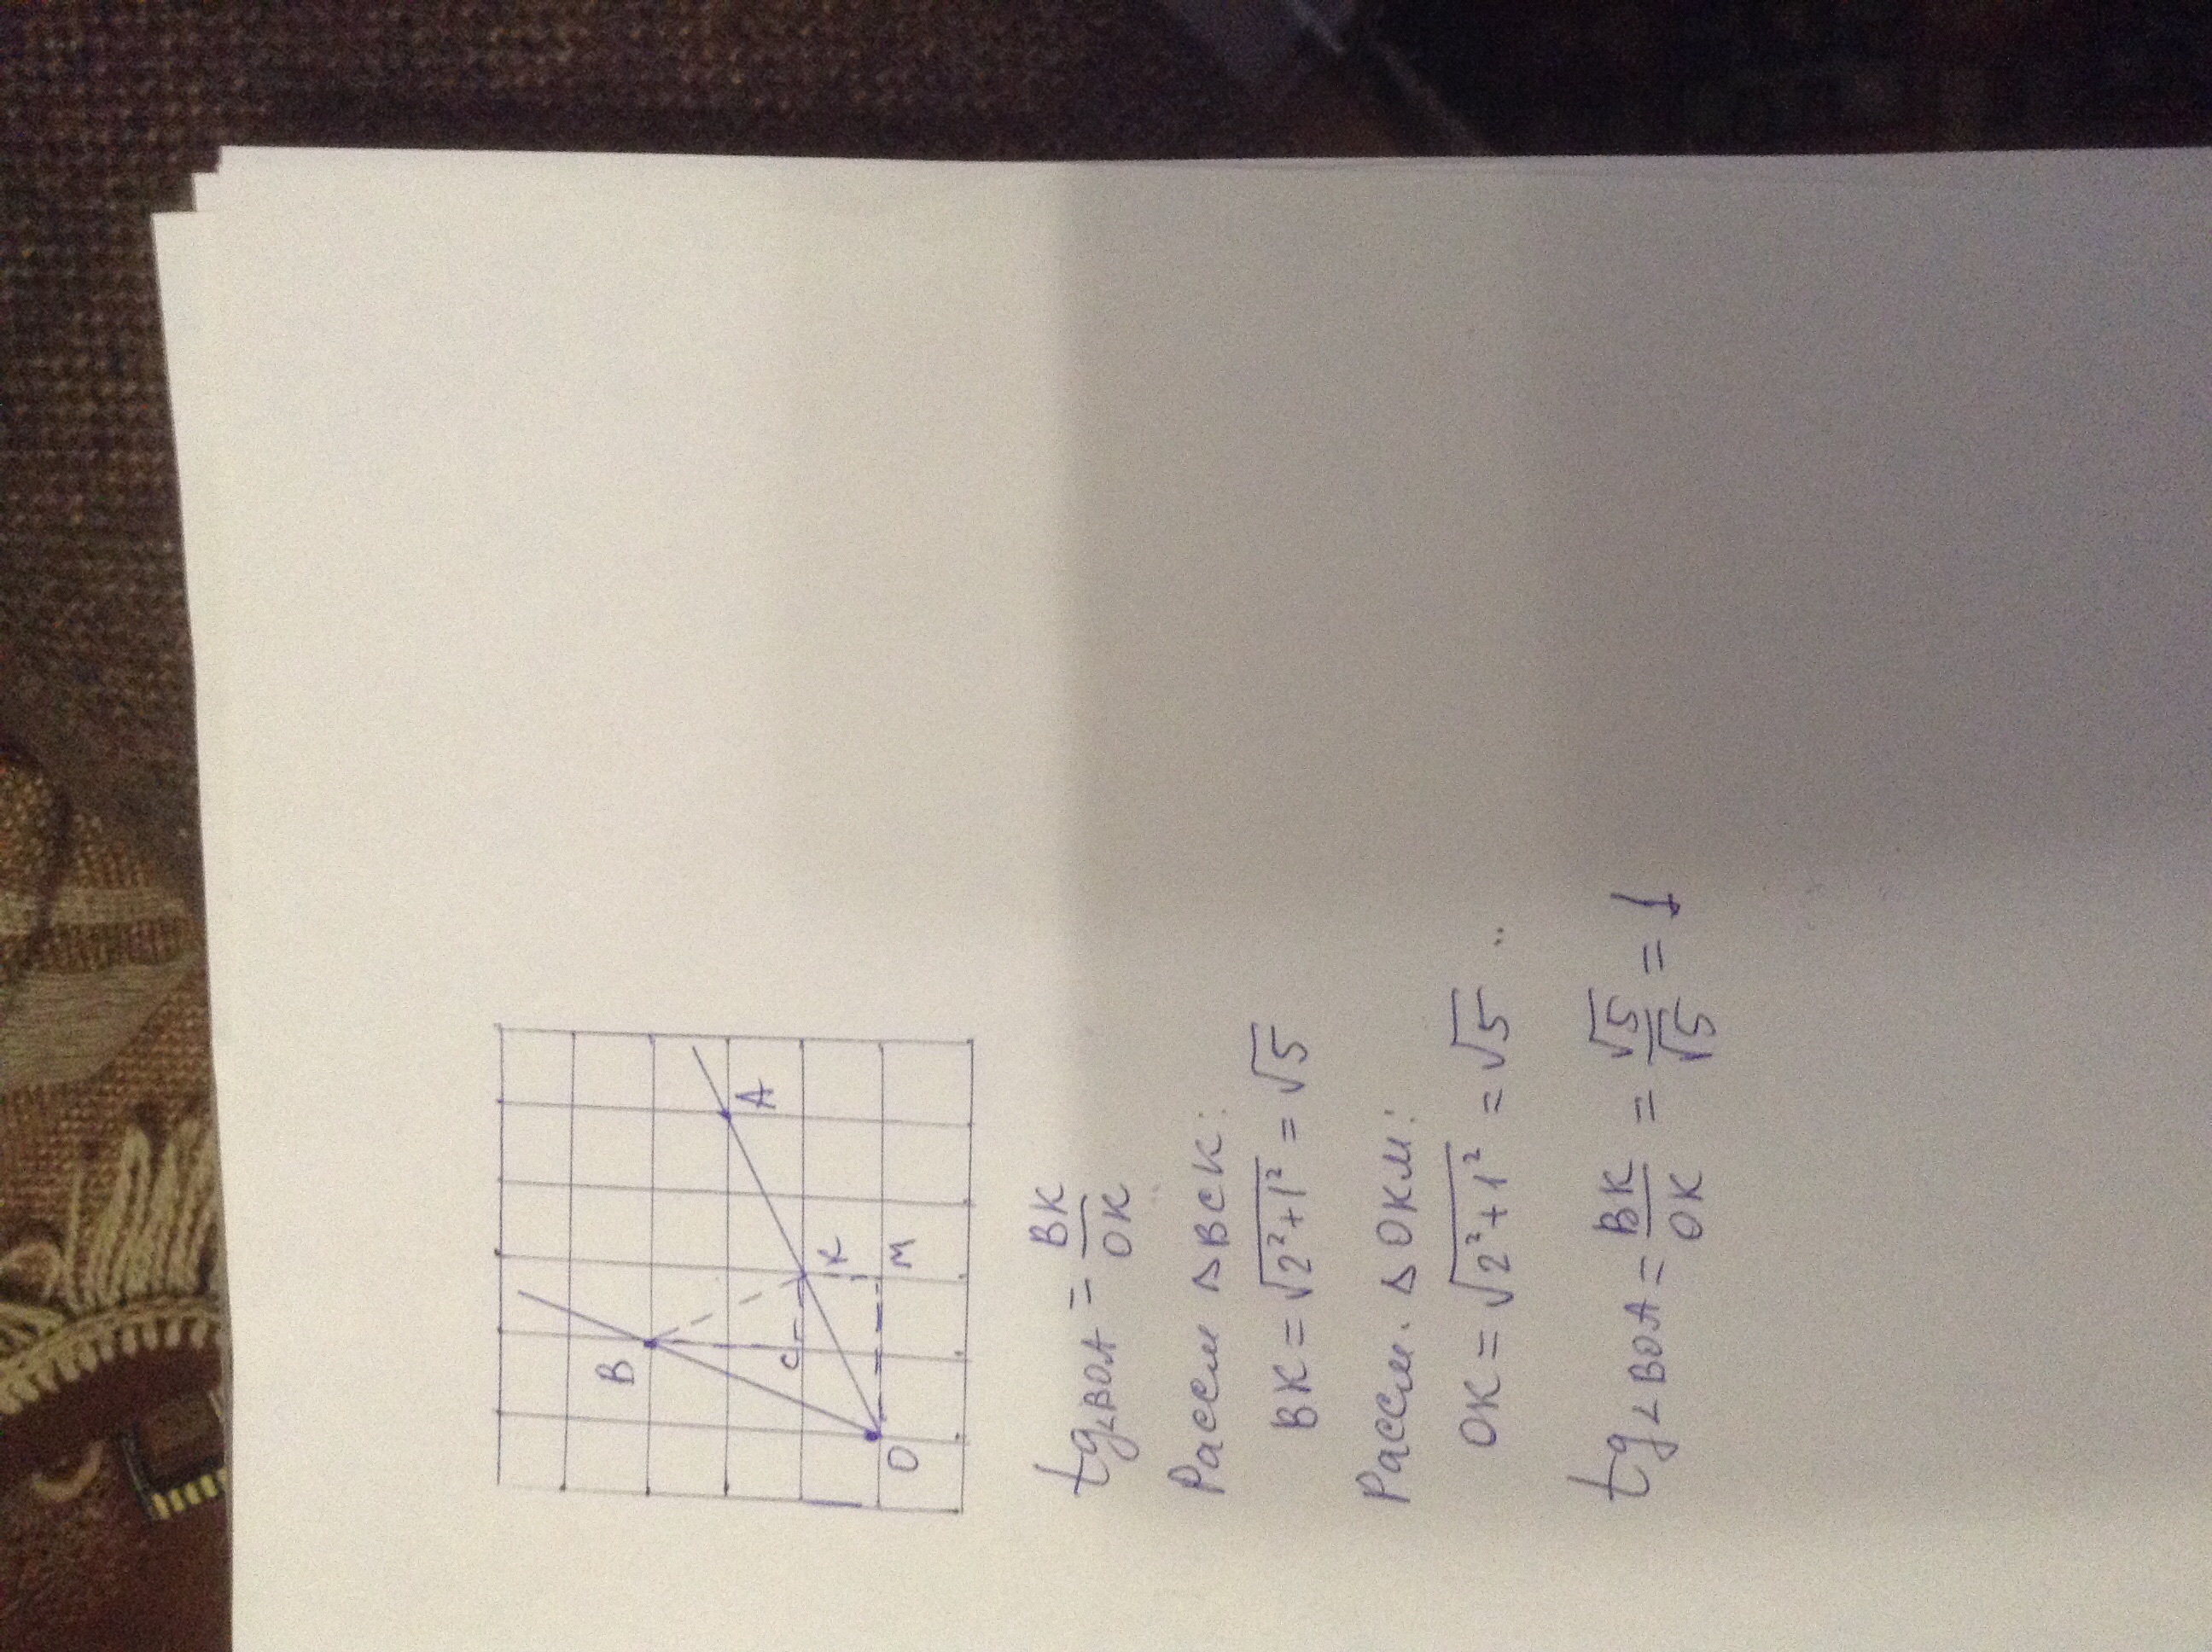 B
A
C
K
O
M
tg∠BOA = BK/OK
Рассм ΔBCK:
BK = √2²+1² = √5
Рассм. ΔOKM:
OK = √2²+1² = √5
tg∠BOA = BK/OK = √5/√5 = 1